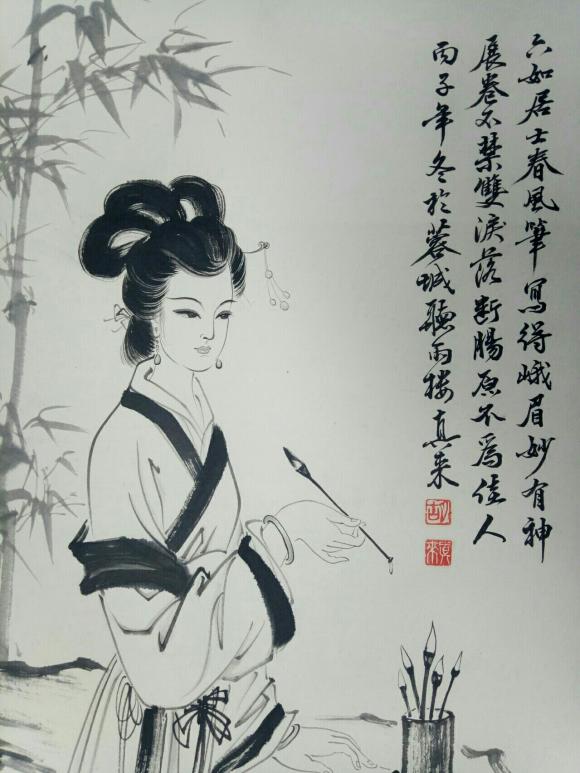 六如居士春風筆寫得峨眉妙有神
展卷不禁雙淚落斷腸原不爲佳人
丙子年冬於蓉城聽雨樓真來
真來